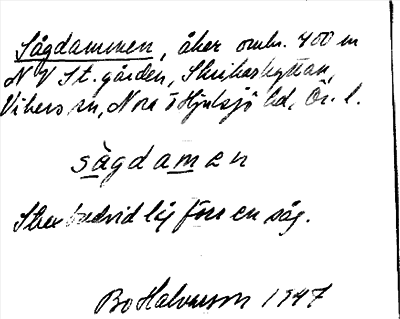 Sågdammen, åker omkr. 400 m
NV St. gården, Skrikarhyttan,
Vikers sn, Nora o Hjulsjö bd, Ör. l.
sågdamen
bredvid låg förr en såg.
Bo Halvarson 1947